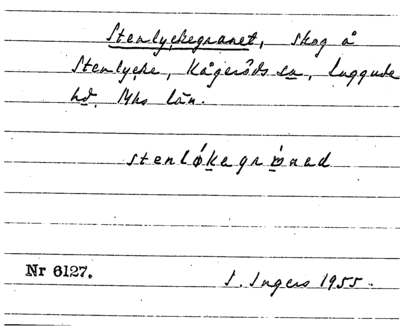 Stenlyckegranet, skog å
Stenlycke, Kågeröds sn, Luggude
hd, Mhs län.
stenlǿkegrǿnad
Nr 6127.
I. Ingers 1955.